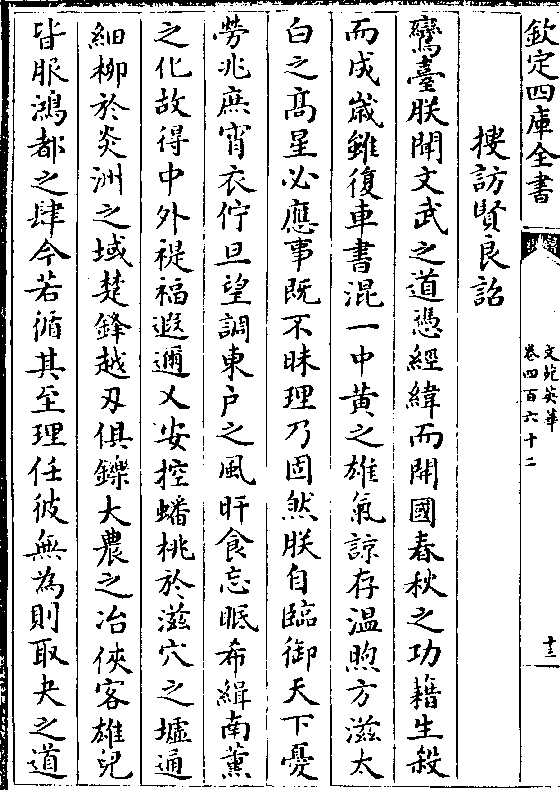 欽定四庫全書
文苑英華
卷四百六十二
十三
搜訪賢良詔
鸞臺朕聞文武之道憑經緯而開國春秋之功藉生殺
而成嵗雖復車書混一中黄之雄氣諒存温煦方滋太
白之髙星必應事既不昧理乃固然朕自臨御天下憂
勞兆庶宵衣佇旦望調東户之風旰食忘眠希緝南薰
之化故得中外禔福遐邇乂安控蟠桃於滋穴之墟通
細柳於炎洲之域楚鋒越刃俱鑠大農之冶俠客雄兒
皆服鴻都之肆今若循其至理任彼無為則取夬之道